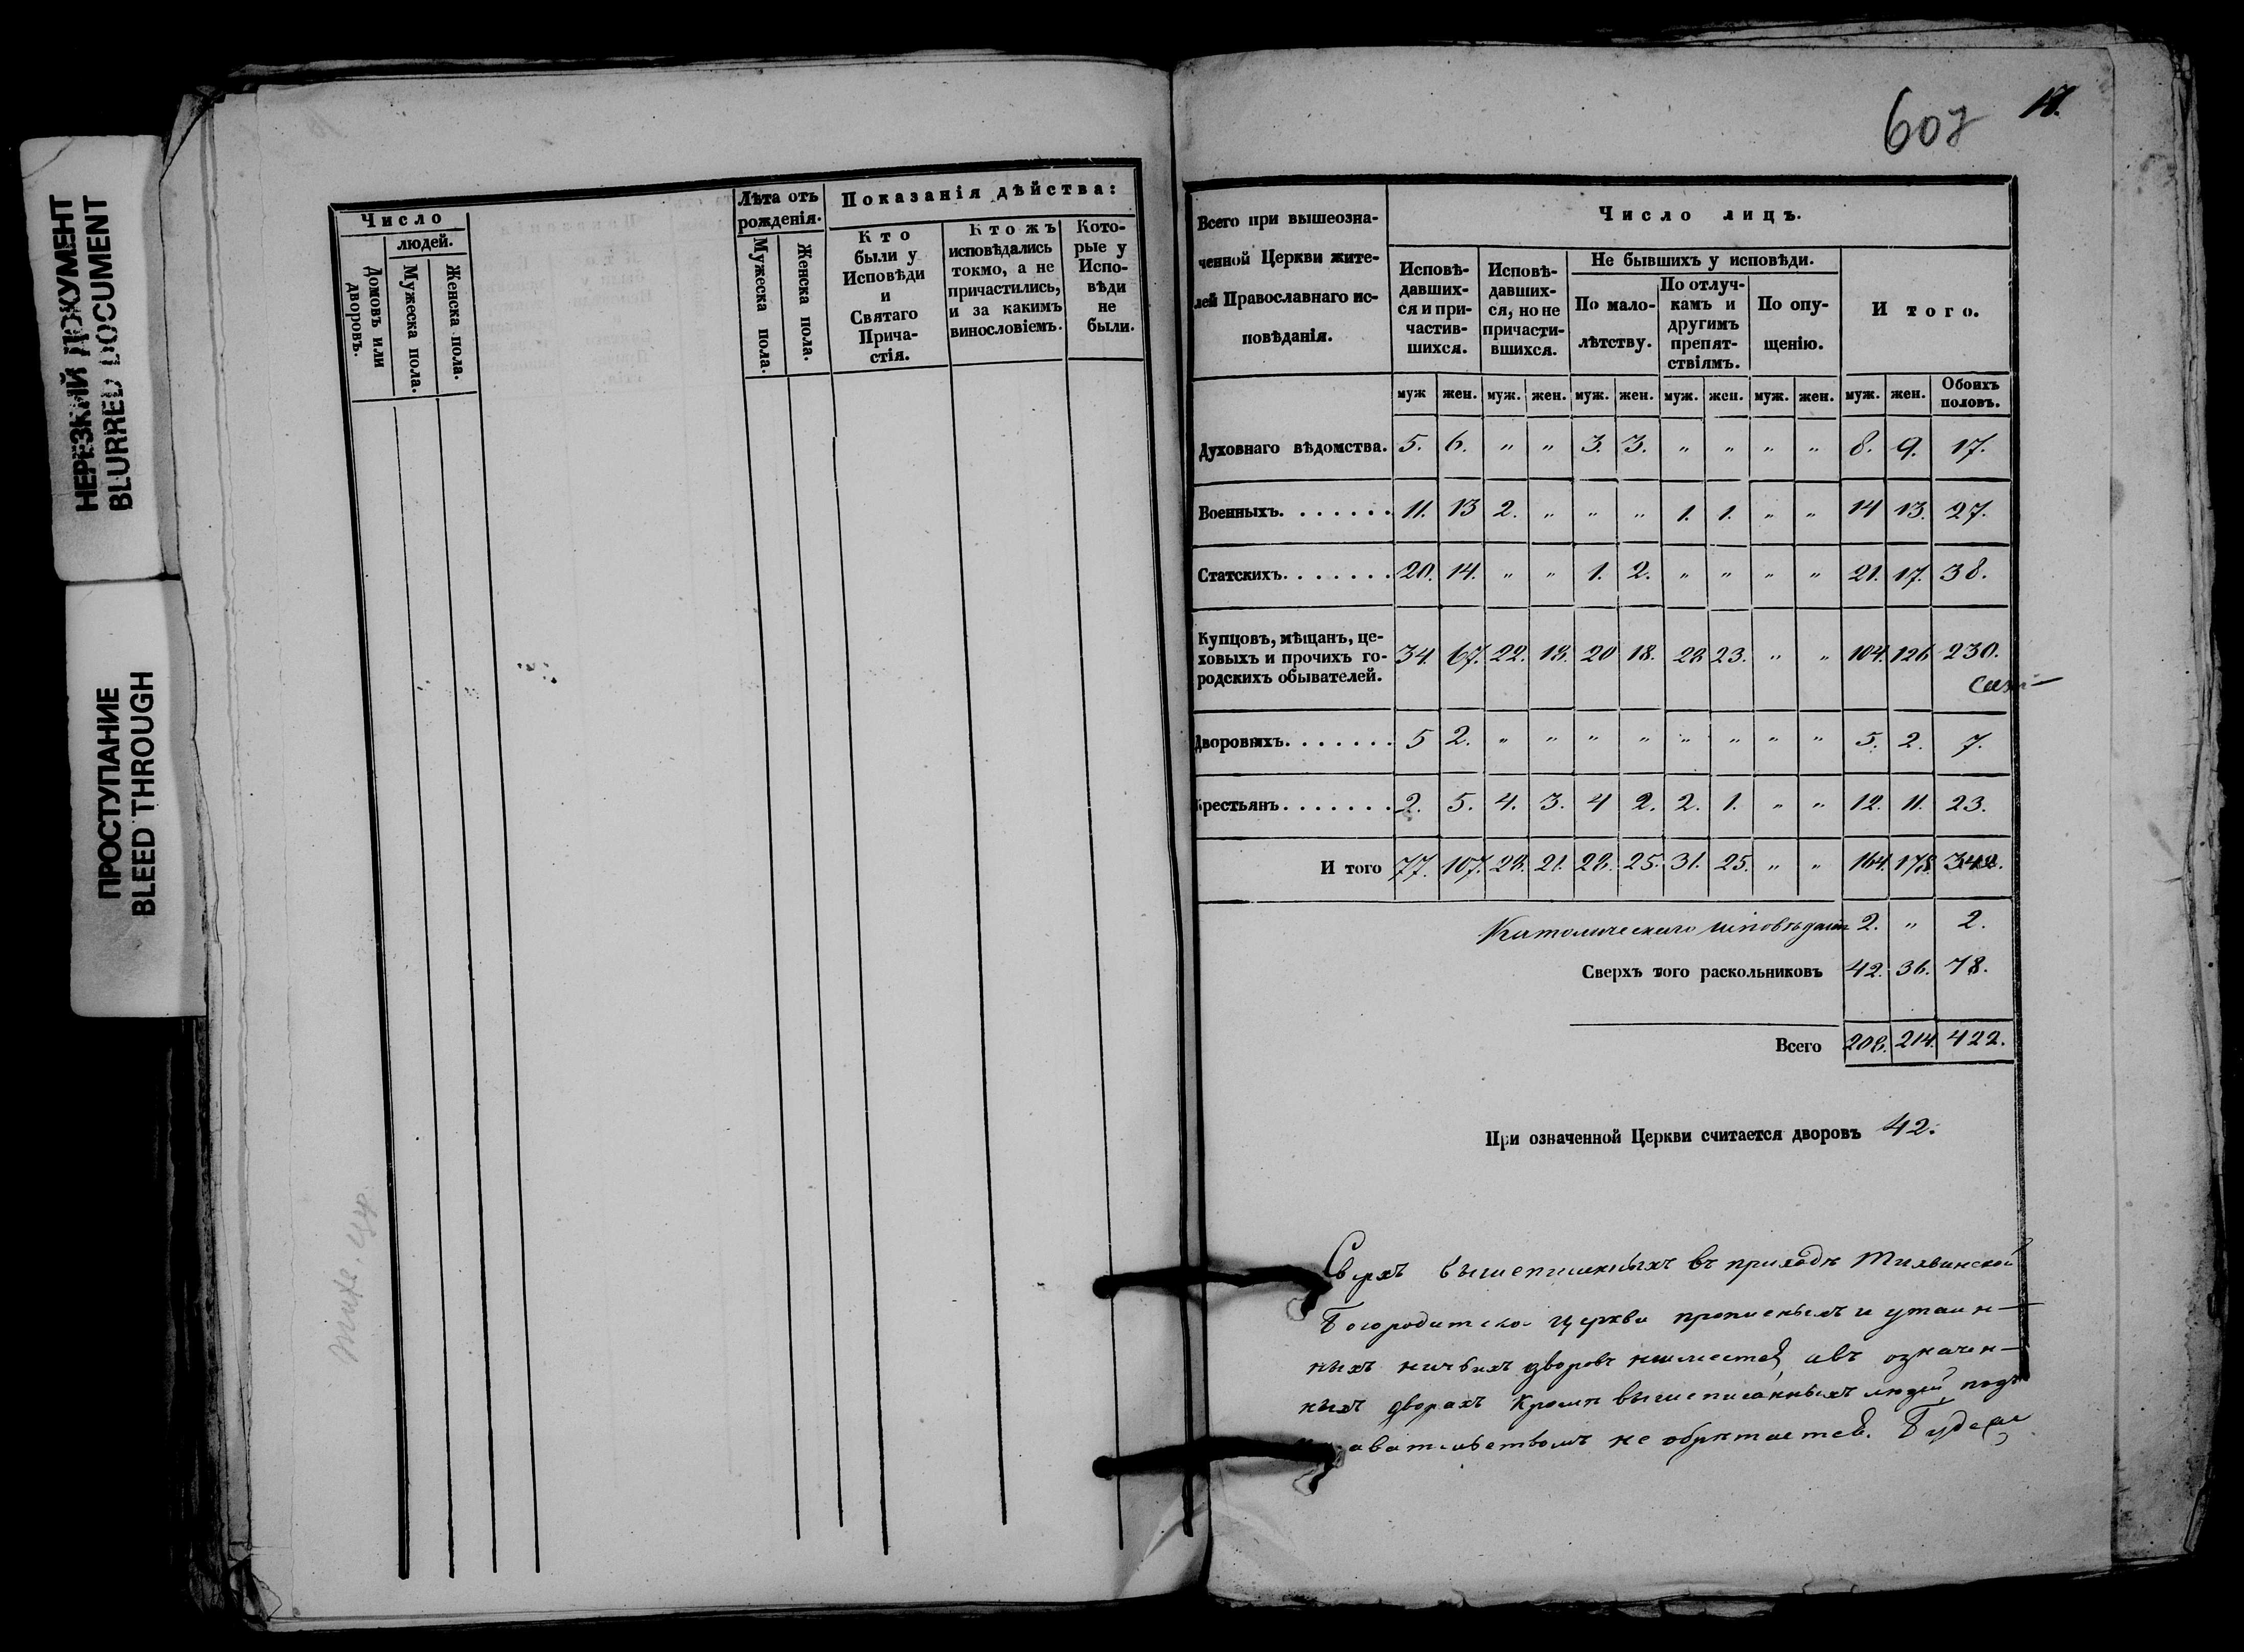 НЕРЕЗКИЙ ДОКУМЕНТ
BLURRED DOCUMENT
ПРОСТУПАНИЕ
BLEED THROUGH
Число
людей.
Домовъ или дворовъ.
Мужеска пола.
Женска пола.
Лѣта отъ рожденія.
Мужеска пола.
Женска пола.
Показанія дѣйства:
Кто были у Исповѣди и Святаго Прича-стія.
Ктожъ исповѣдались токмо, а не причастились, и за какимъ винословіемъ.
Кото-рые у Испо-вѣди не были.
607 17.
Всего при вышеозна-ченной Церкви жите-лей Православнаго ис-повѣданія.
Число лицъ.
Исповѣ-давших-ся и при-частив-шихся.
Исповѣ-давших-ся, но не причасти-вшихся.
Не бывшихъ у исповѣди.
По мало-лѣтству.
По отлуч-камъ и другимъ препят-ствіямъ.
По опу-щенію.
И того.
муж жен. муж. жен. муж. жен. муж. жен. муж. жен. муж. жен. Обоихъ половъ.
Духовнаго вѣдомства. 5. 6. " " 3. 3. " " " " 8. 9. 17.
Военныхъ. . . . . . . 11. 13 2. " " " 1. 1. " " 14 13. 27.
Статскихъ. . . . . . . 20. 14. " " 1. 2. " " " " 21. 17. 38.
Купцовъ, мѣщанъ, це-
ховыхъ и прочихъ го- 34. 67. 22. 18. 20 18. 28 23. " " 104. 126 230.
родскихъ обывателей.
Дворовыхъ. . . . . . . 5 2. " " " " " " " " 5. 2. 7.
Крестьянъ. . . . . . . 2. 5. 4. 3. 4 2. 2. 1. " " 12. 11. 23.
И того 77. 107. 28. 21. 28. 25. 31. 25. " " 164. 178 342.
Католическаго исповѣданія 2. " 2.
Сверхъ того раскольниковъ 42. 36. 78.
Всего 208. 214. 422.
При означенной Церкви считается дворовъ 42.
Сверхъ вышеписанныхъ въ приходѣ Тихвинской
Богородитской церкви прописныхъ и утаин-
ныхъ ничьихъ дворовъ неимеется, авъ означен-
ныхъ дворахъ Кромѣ вышеписанныхъ людей подъ
не обрѣтается.